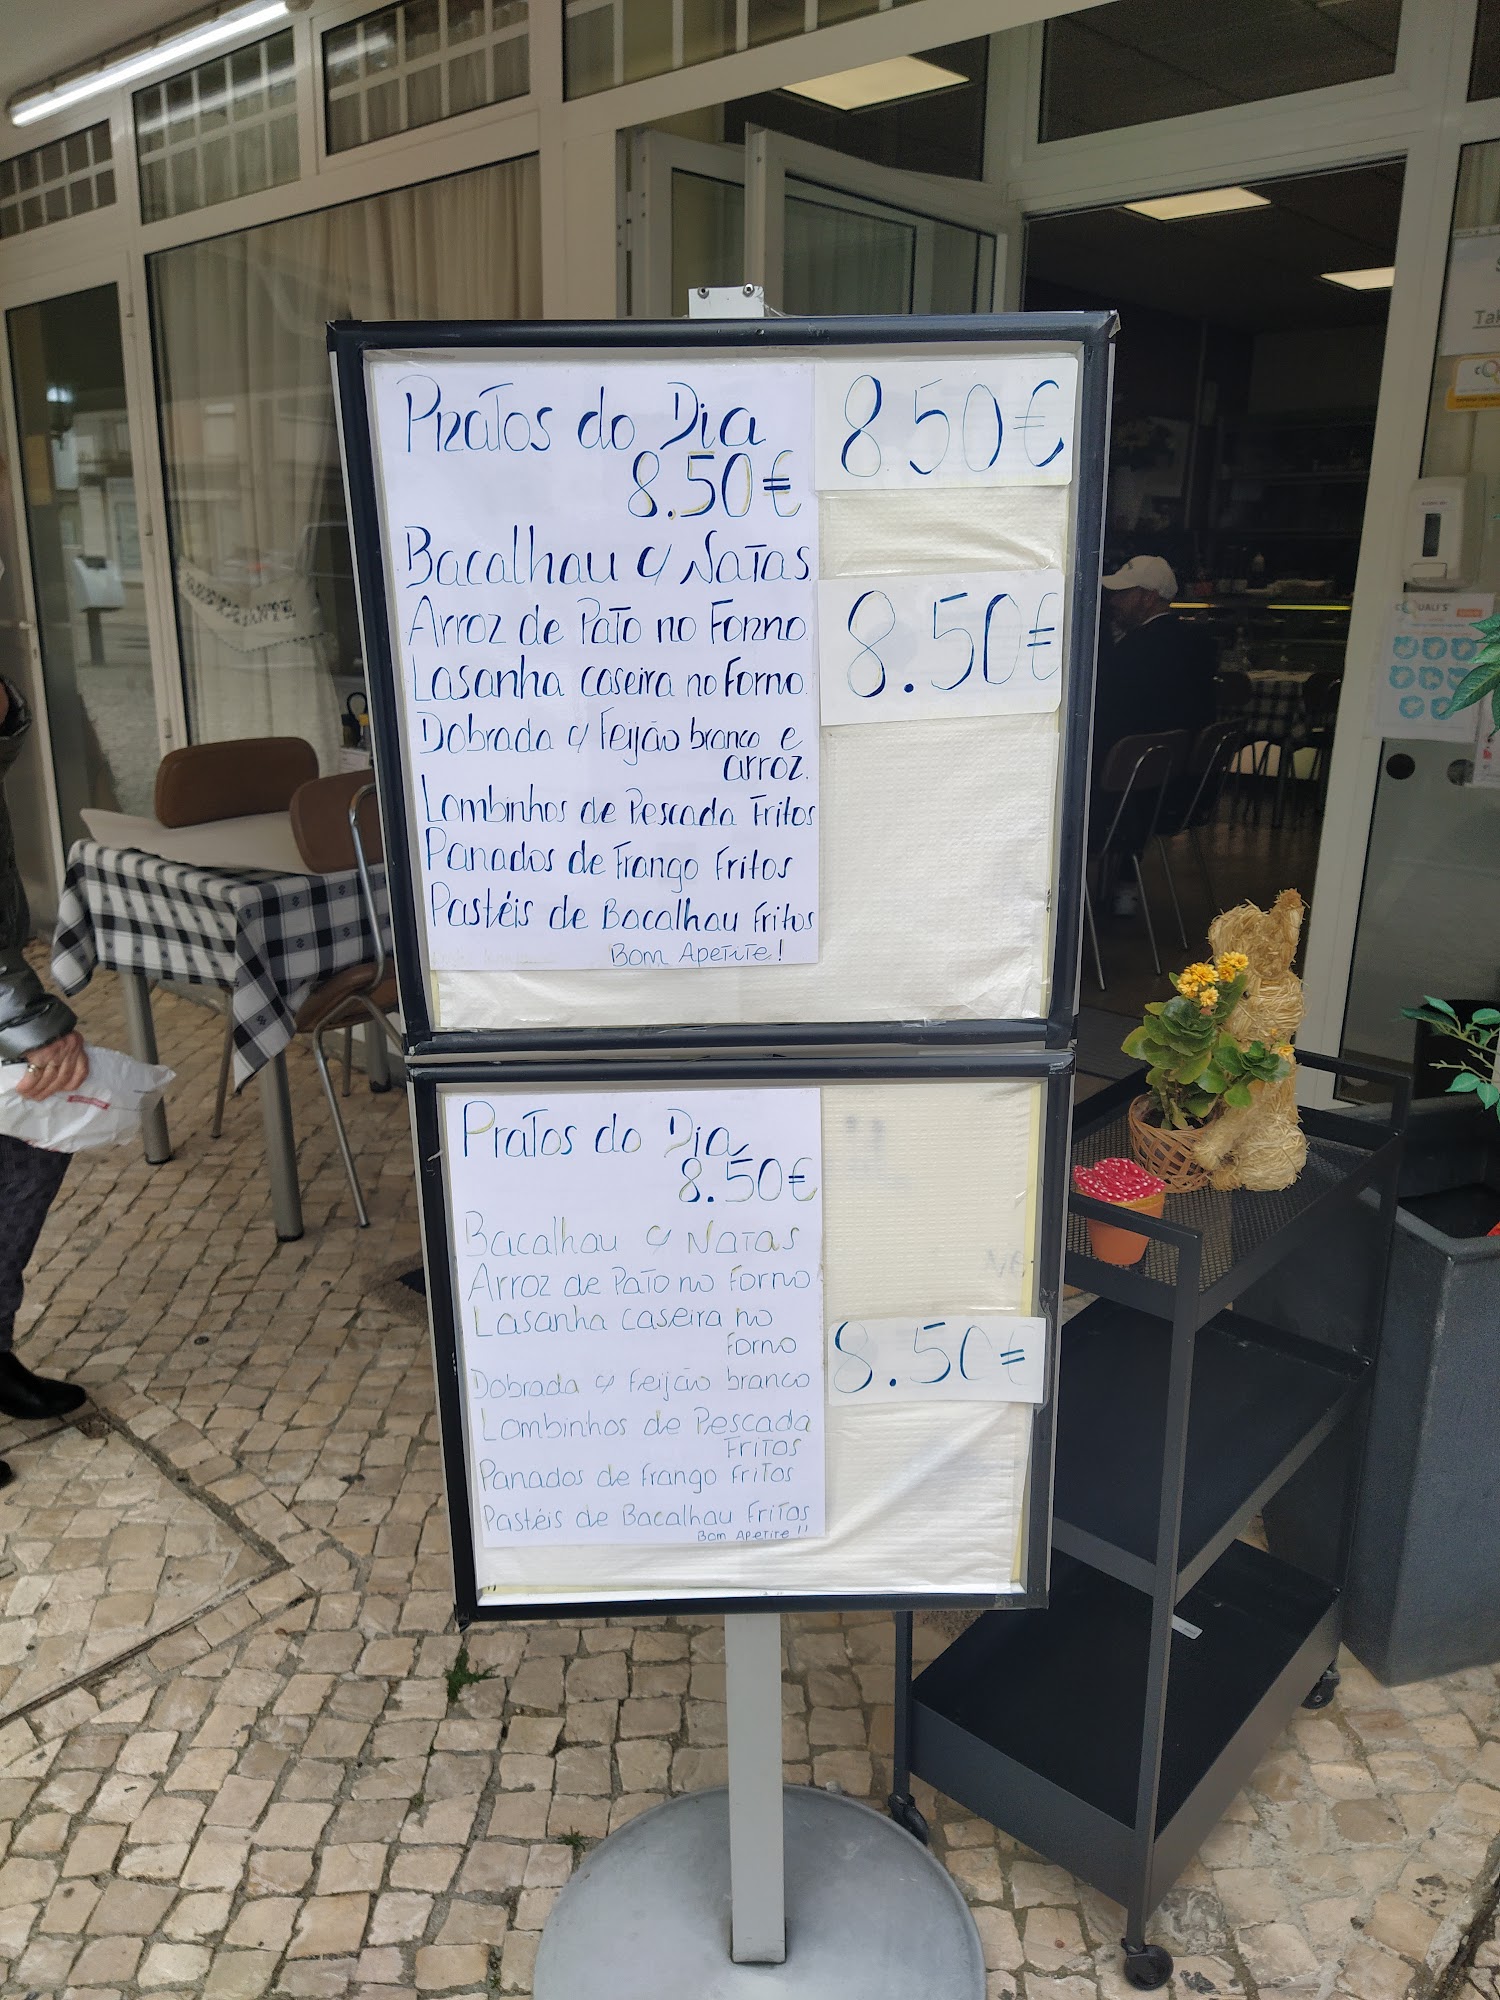 Pratos do Dia
8.50€
Bacalhau c/ Natas
Arroz de Pato no Forno
Lasanha caseira no Forno
Dobrada c/ Feijão branco e
arroz.
Lombinhos de Pescada Fritos
Panados de Frango Fritos
Pastéis de Bacalhau Fritos
Bom Apetite!
8.50€
8.50€
Pratos do Dia
8.50€
Bacalhau c/ Natas
Arroz de Pato no Forno
Lasanha caseira no
Forno
Dobrada c/ Feijão branco
Lombinhos de Pescada
Fritos
Panados de frango fritos
Pastéis de Bacalhau Fritos
Bom Apetite!!
8.50€